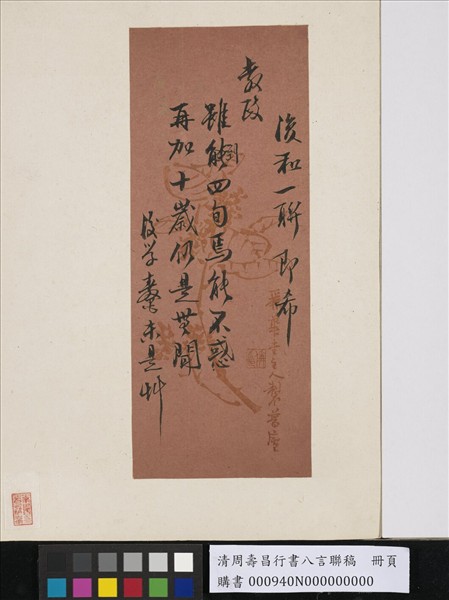 和一聯即希
教政
雖能到四旬焉能不惑
再加十歲仍是無聞
学未是艸
主人製
清周壽昌行書八言聯稿 冊頁
購書 000940N000000000